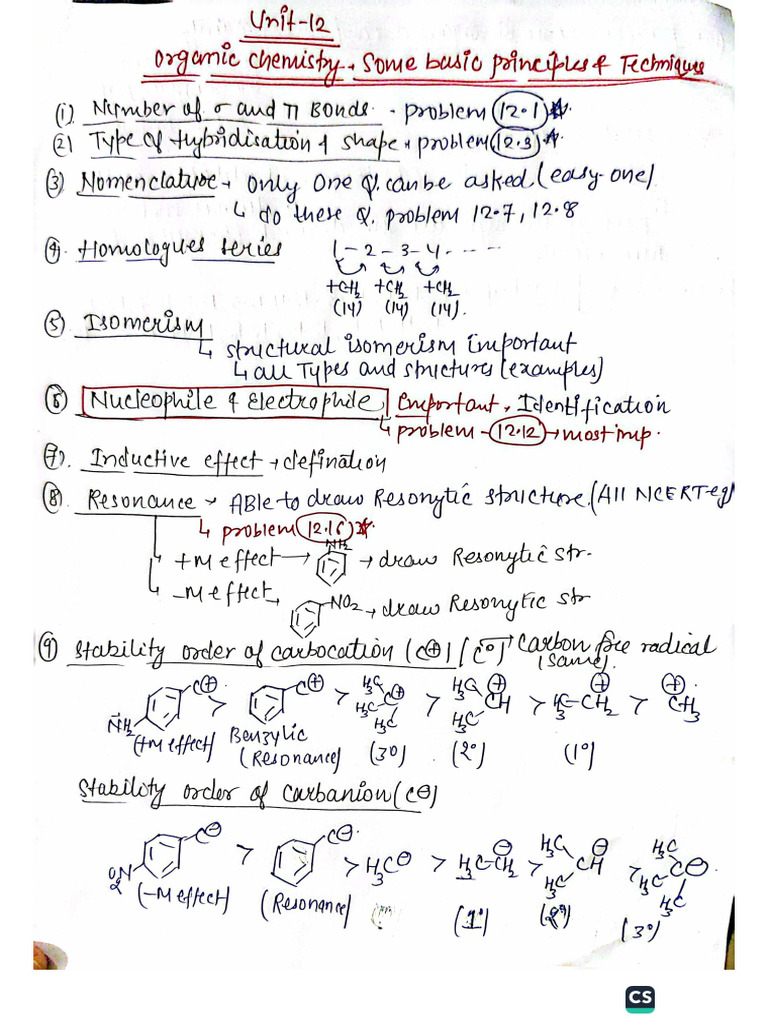 Unit-12
Organic chemistry, Some basic principles & Techniques
(1) Number of σ and π Bonds - problem (12.1)
(2) Type of Hybridisation & shape, problem (12.3)
(3) Nomenclature → Only One Q. can be asked (easy-one)
↳ do these Q. problem 12.7, 12.8
(4). Homologues series 1 - 2 - 3 - 4 - - - -
+CH2 +CH2 +CH2
(14) (14) (14).
(5) Isomerism
↳ structural isomerism important
↳ all Types and structures (examples)
(6) Nucleophile & Electrophile Important, Identification
↳ problem - (12.12) → most imp.
(7). Inductive effect → defination
(8) Resonance → Able to draw Resonytic structure. (All NCERT-eg)
↳ problem (12.16)
NH2
↳ +M effect → → draw Resonytic str.
↳ -M effect, NO2 → draw Resonytic str
(9) Stability order of carbocation (C⊕) / (C°) → Carbon free radical
(same).
C⊕ > C⊕ > H3C H3C C⊕ H3C > H3C H3C CH ⊕ > H3C-CH2 ⊕ > CH3 ⊕
NH2
(+M effect) Benzylic
(Resonance) (3°) (2°) (1°)
Stability order of carbanion (C⊖)
C⊖ > C⊖ > H3C⊖ > H3C-CH2 ⊖ > H3C H3C CH ⊖ > H3C H3C H3C C⊖
O2N
(-M effect) (Resonance) (1°) (2°) (3°)
CS